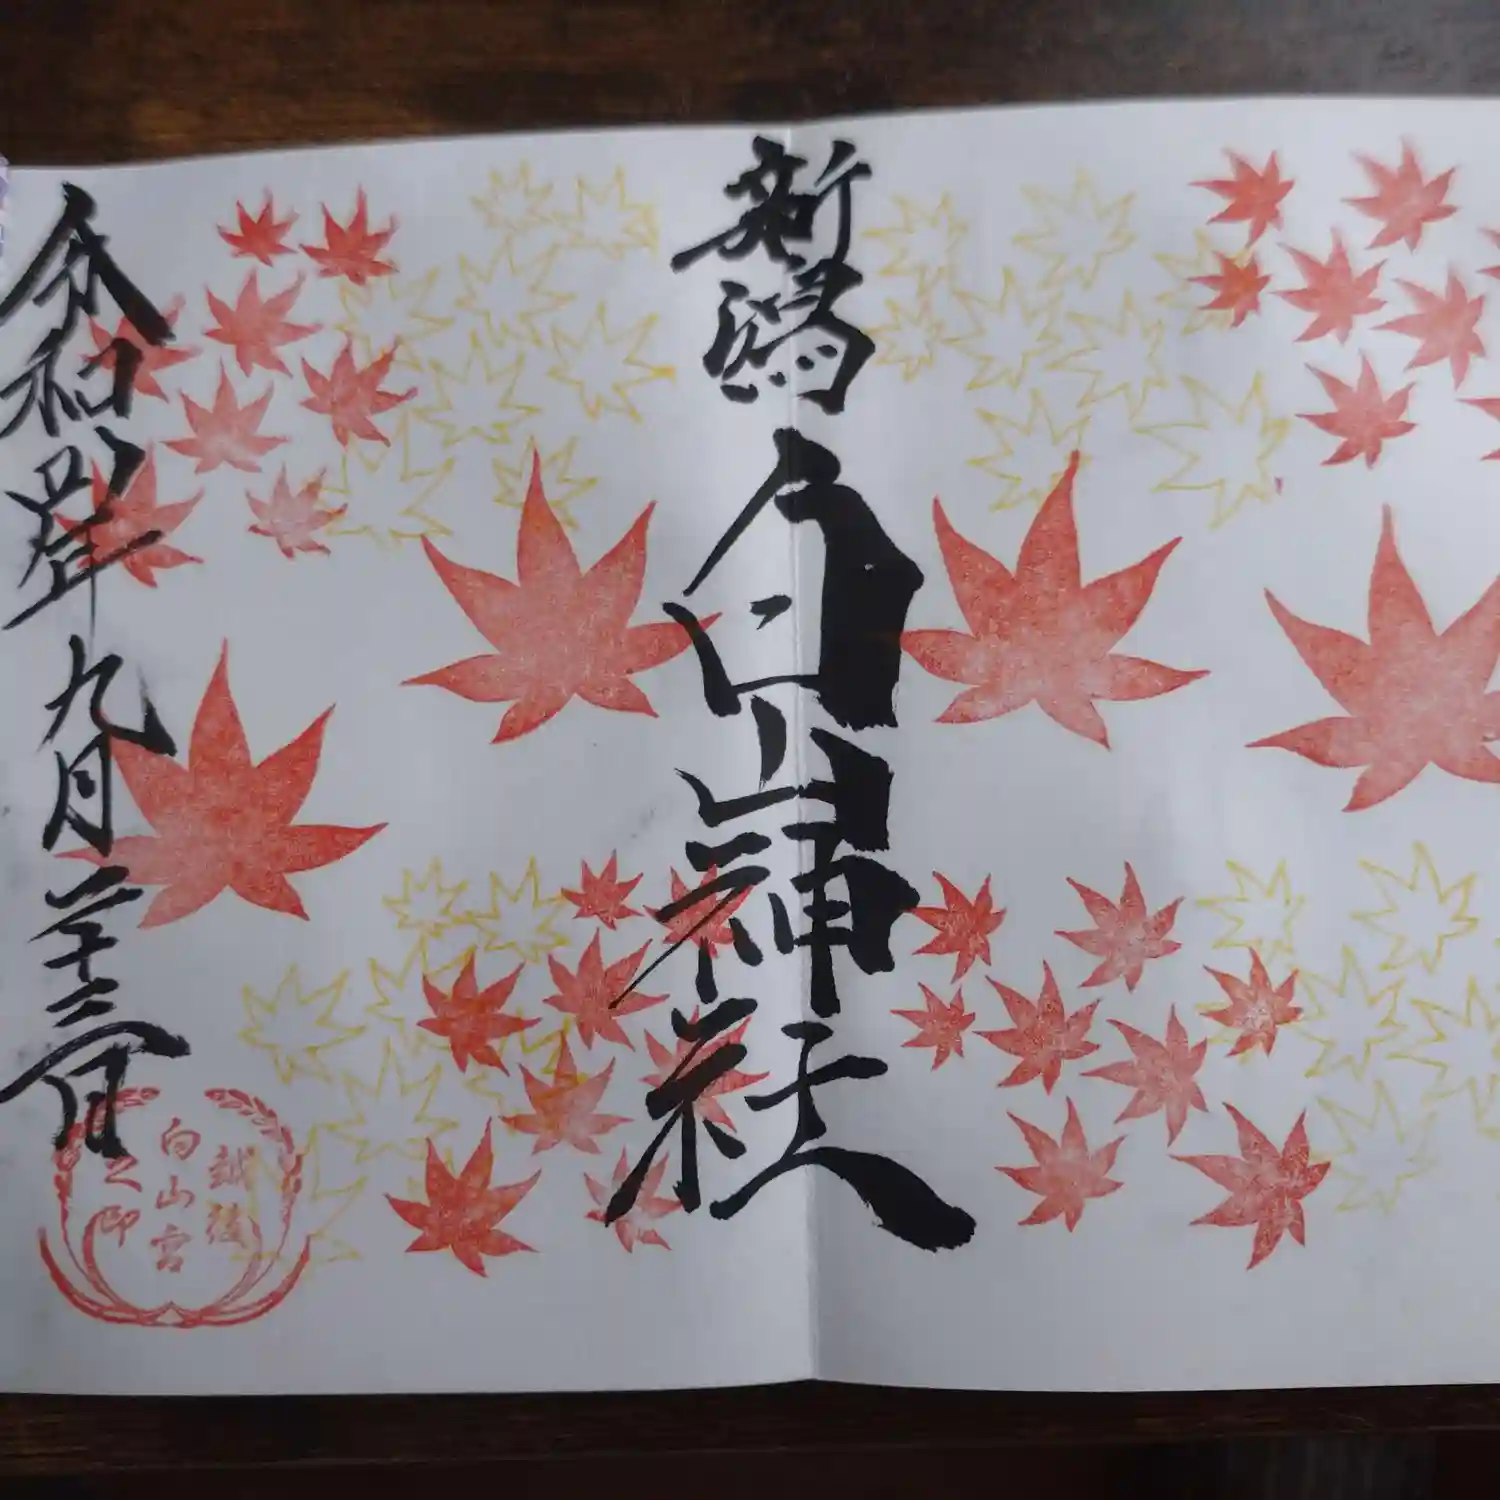 新潟白山神社
令和四年九月二十三日
越後
白山宮
之印